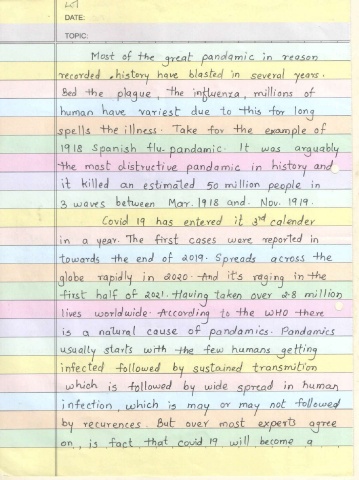 DATE:
TOPIC:
Most of the great pandamic in reason
recorded history have blasted in several years.
Bed the plague, the influenza, millions of
human have variest due to this for long
spells the illness. Take for the example of
1918 spanish flu pandamic. It was arguably
the most distructive pandamic in history and
it killed an estimated 50 million people in
3 waves between Mar. 1918 and. Nov. 1919.
Covid 19 has entered it 3rd calender
in a year. The first cases were reported in
towards the end of 2019. Spreads across the
globe rapidly in 2020. And it's raging in the
first half of 2021. Having taken over 2.8 million
lives worldwide. According to the WHO there
is a natural cause of pandamics. Pandamics
usually starts with the few humans getting
infected followed by sustained transmition
which is followed by wide spread in human
infection, which is may or may not followed
by recurences. But over most experts agree
on, is fact that covid 19 will become a